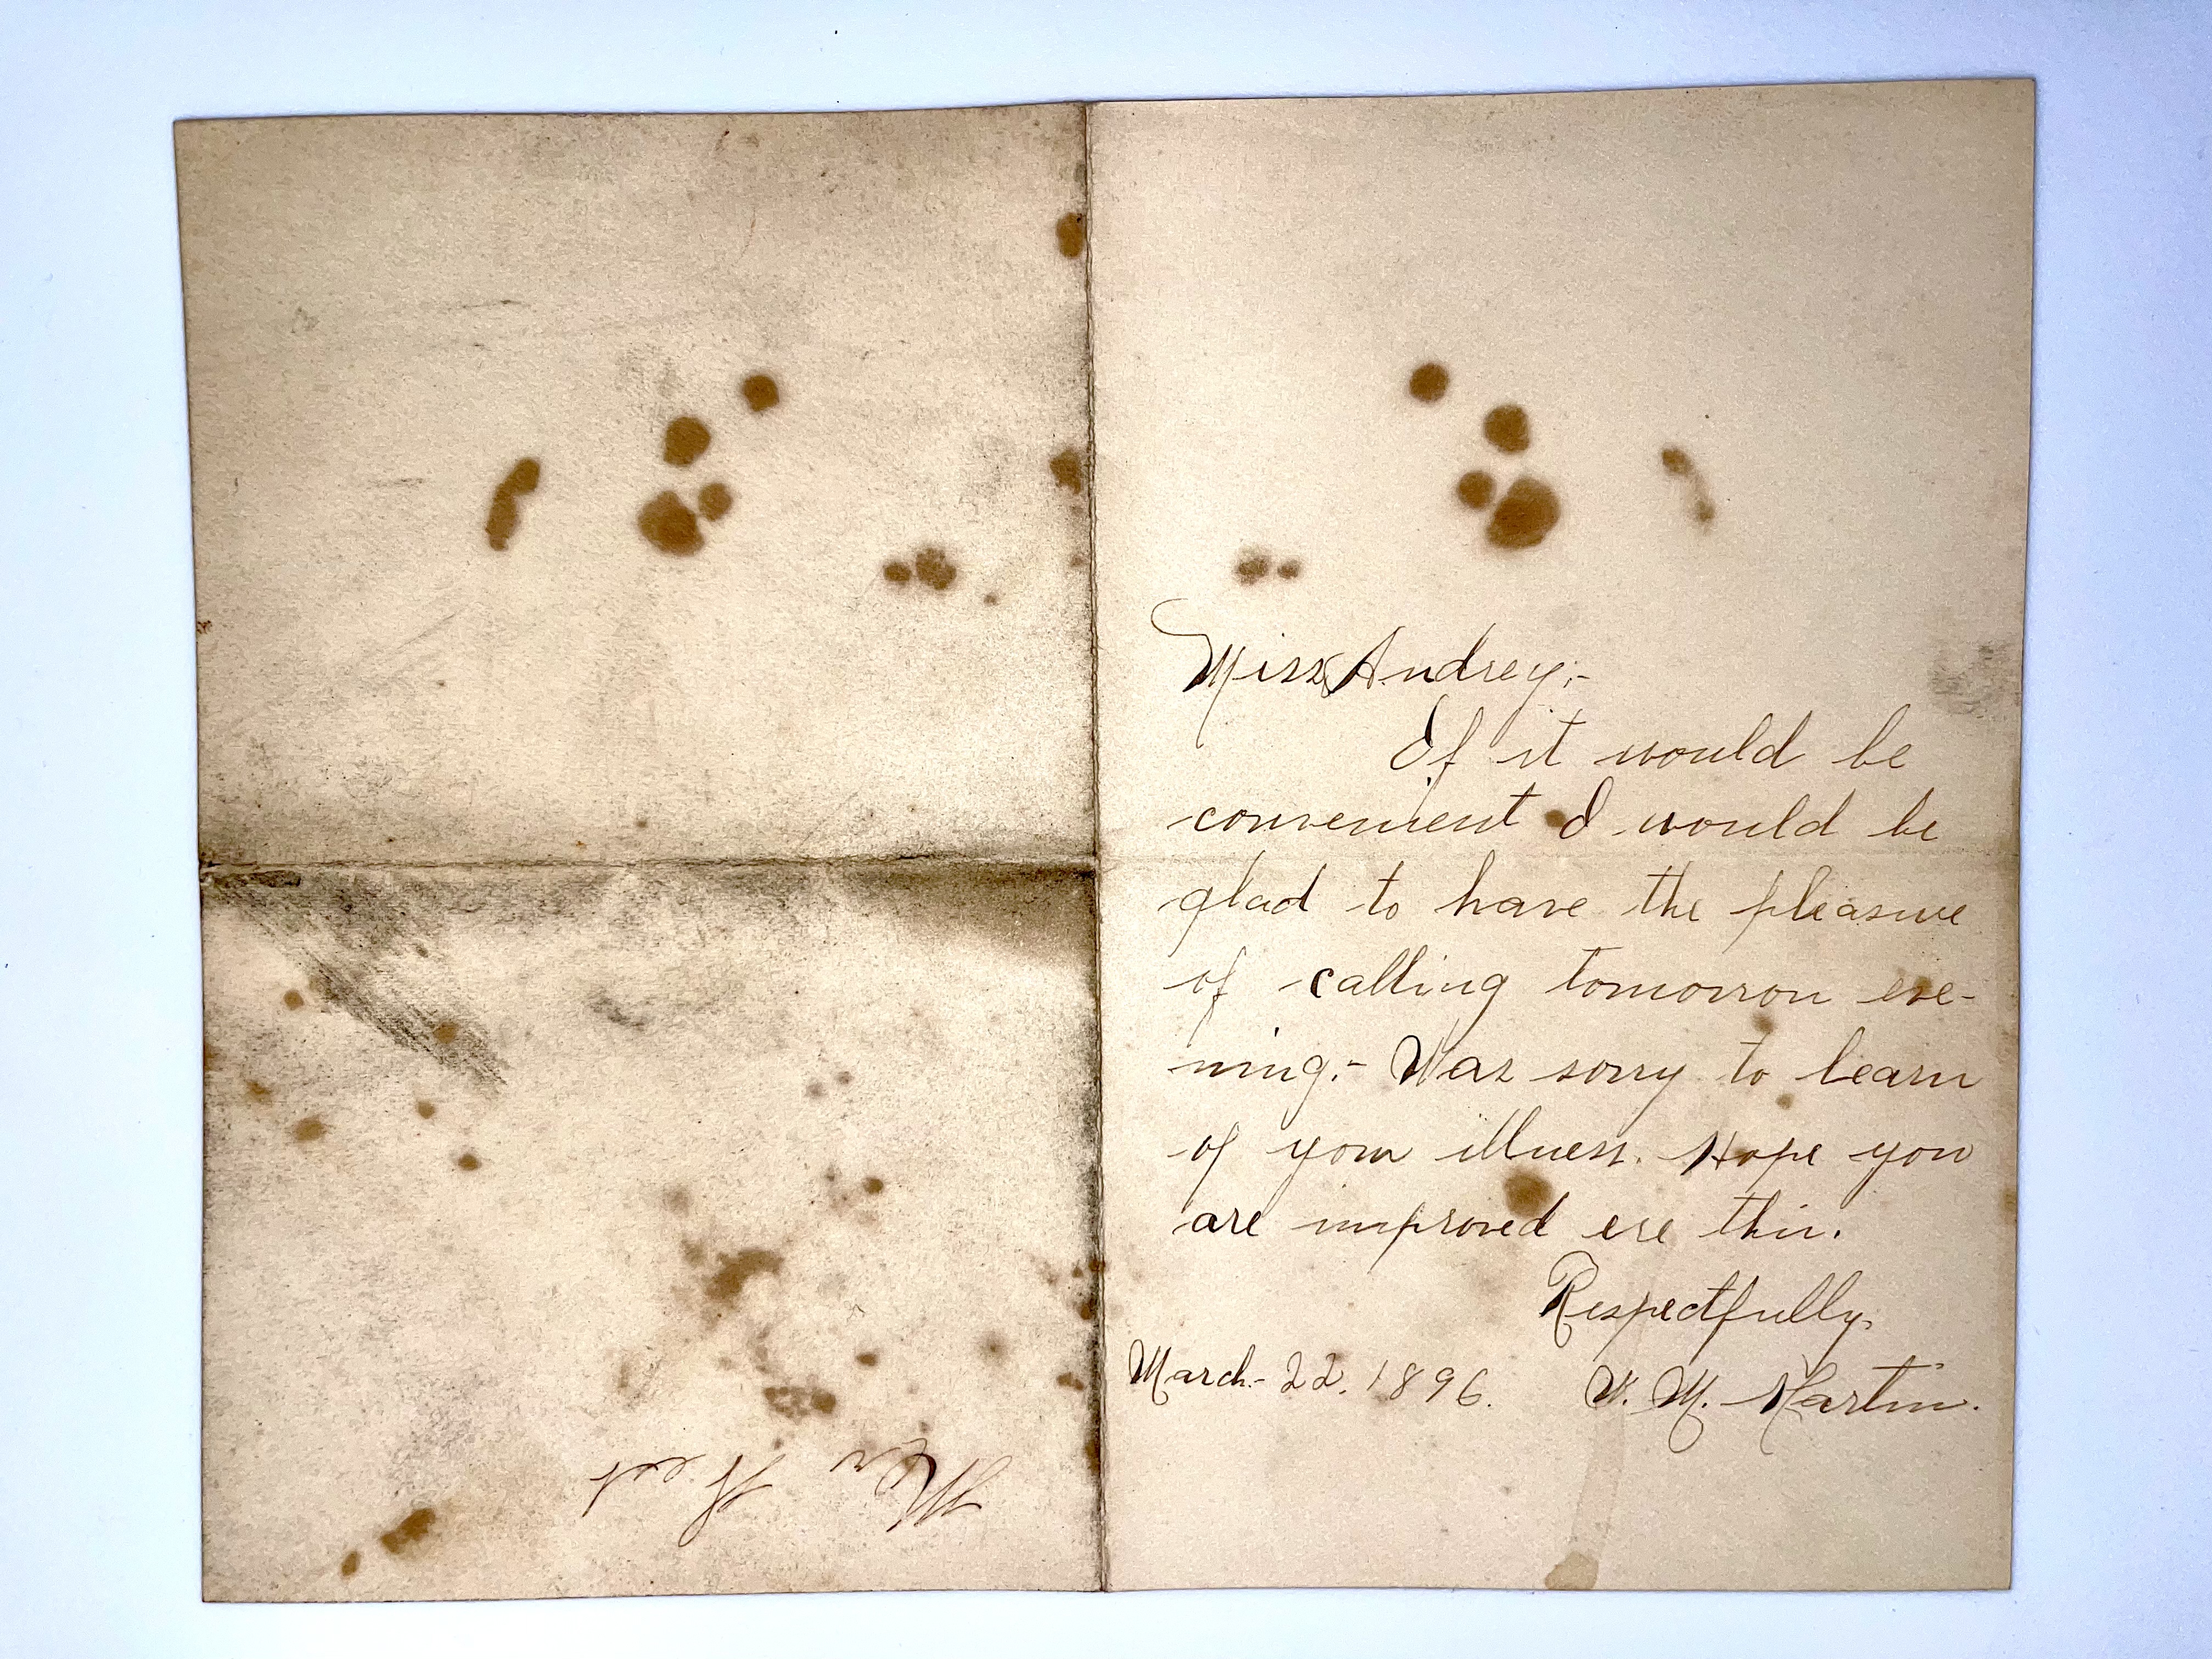 Miss Audrey;-
If it would be
convenient I would be
glad to have the pleasure
of calling tomorrow eve-
ning.- Was sorry to learn
of your illness. Hope you
are improved ere this.
Respectfully,
March- 22. 1896. W. M. Martin.